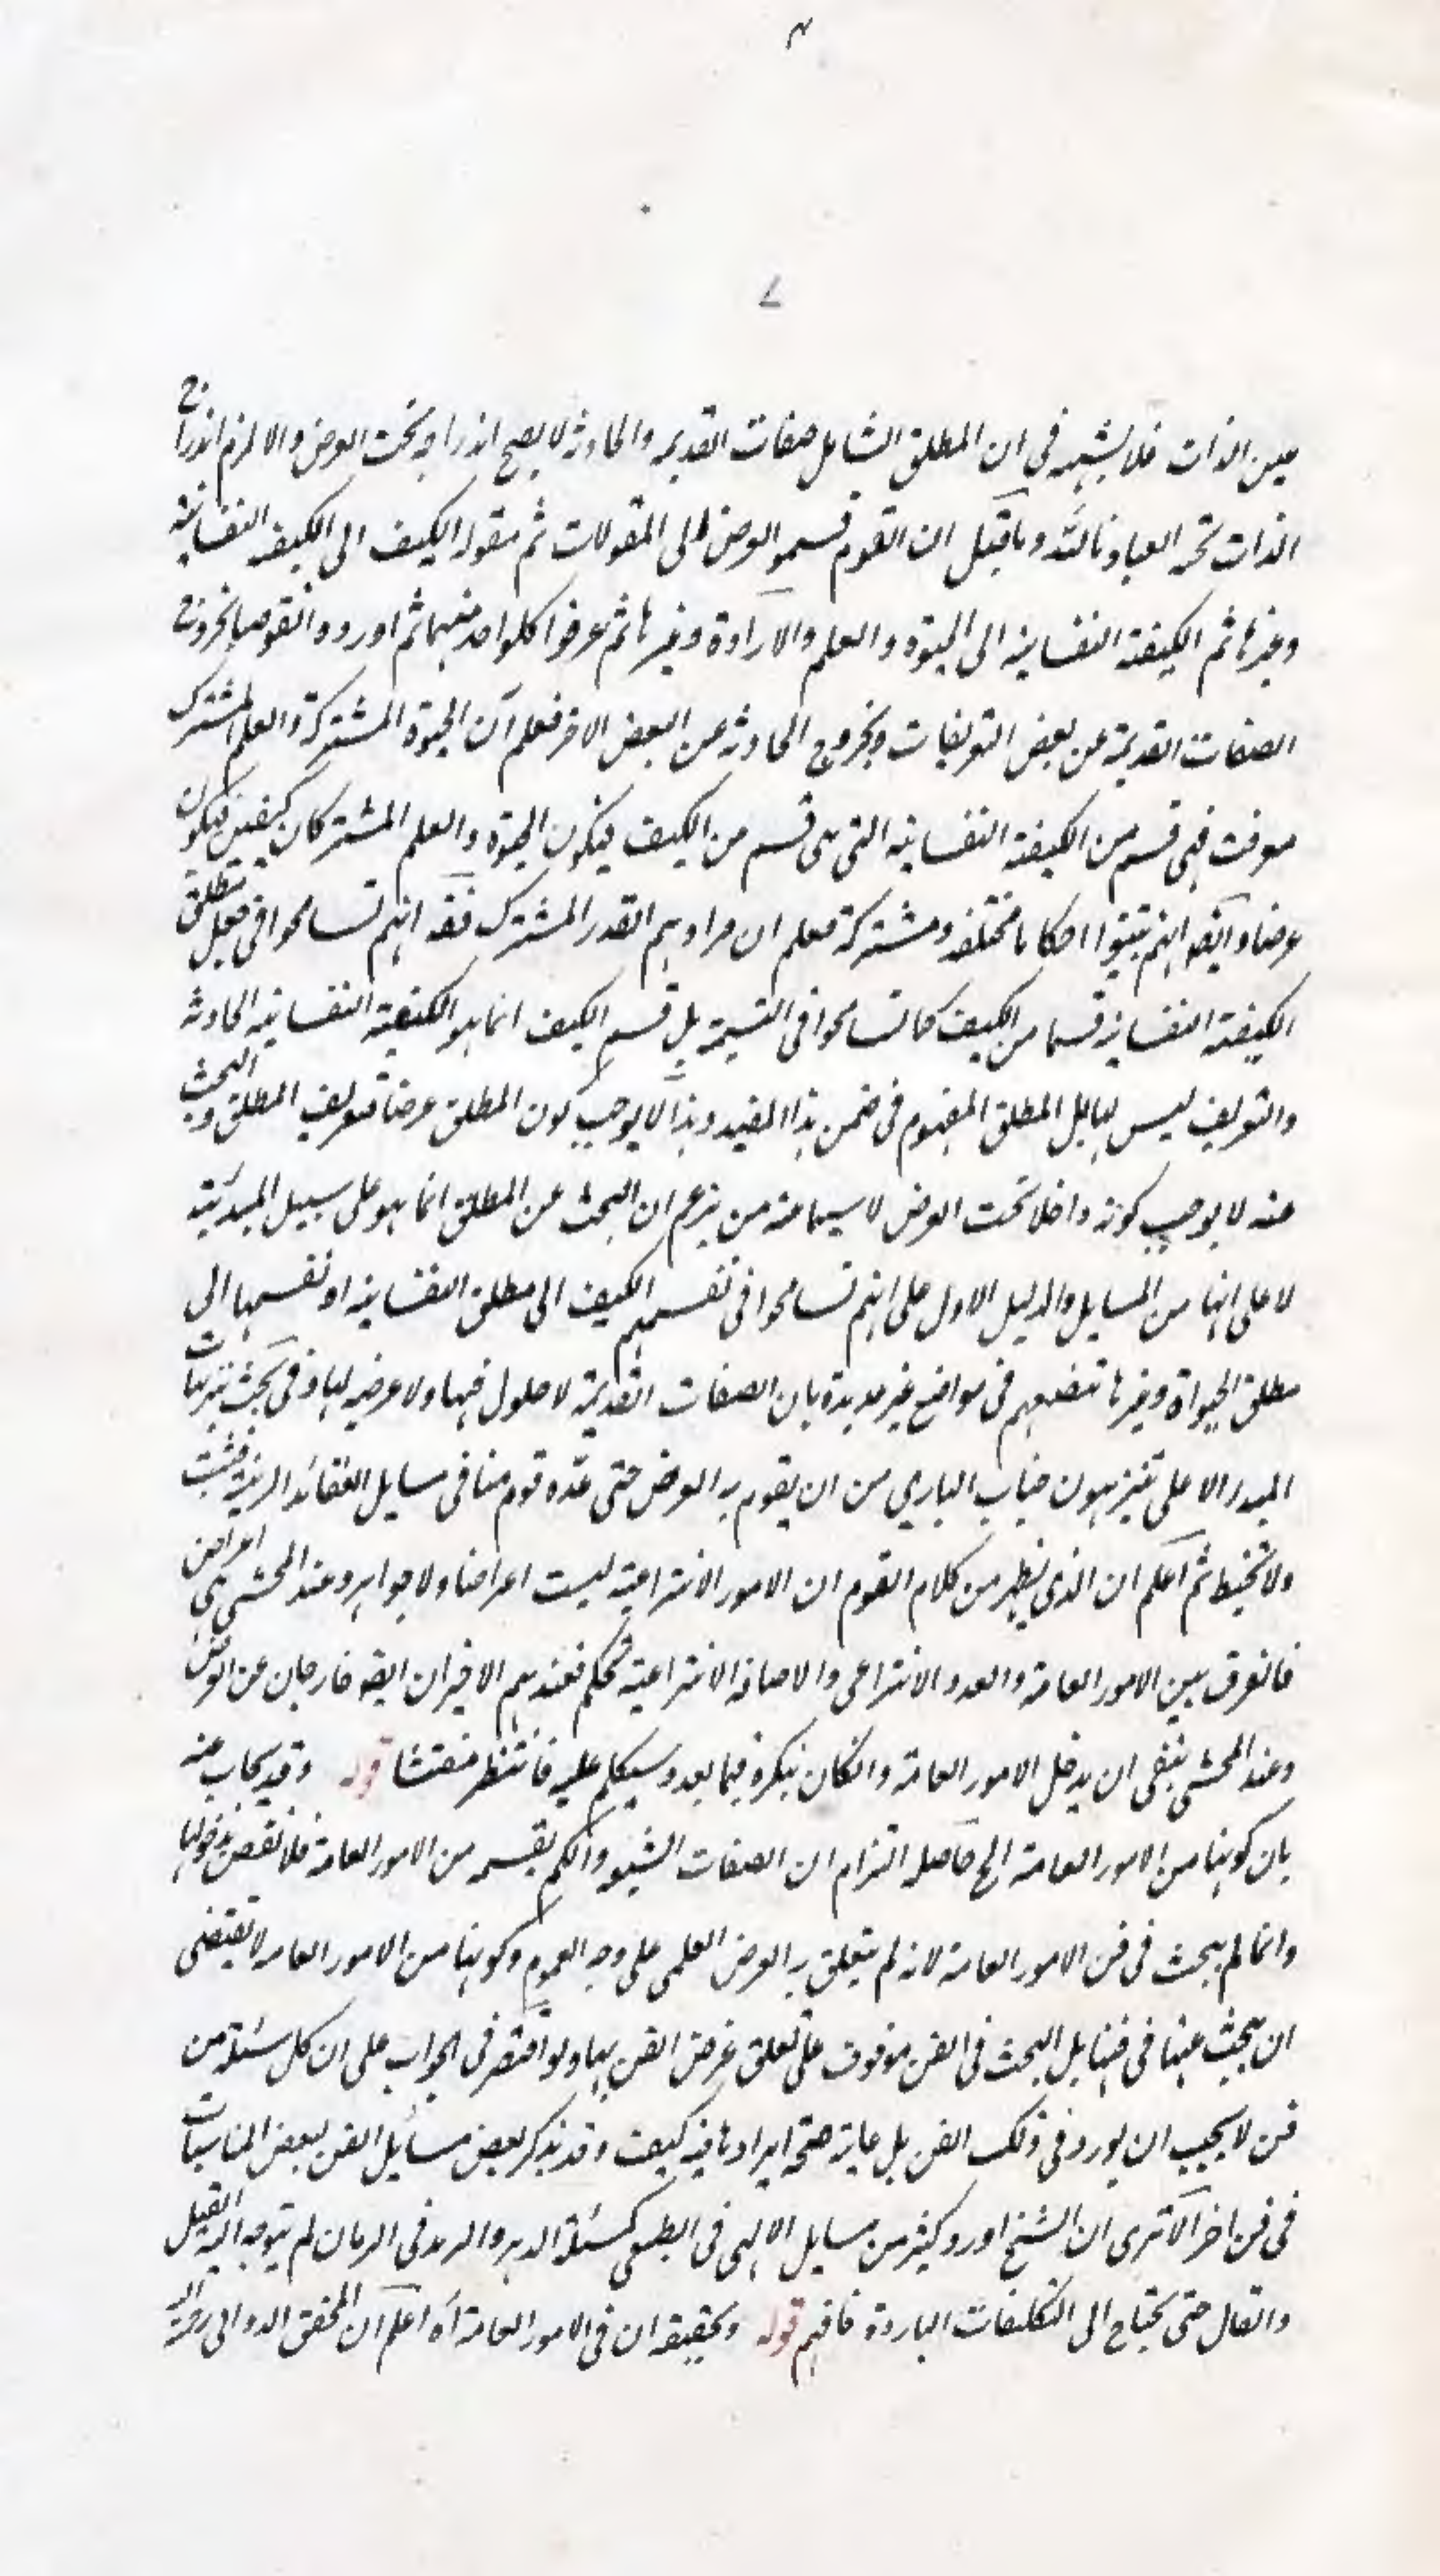 ٧
عين الذات فلا يشتبه في ان المطلق الشامل صفات القديمه والحادثه لا يصح اندراجه تحت العرض والا لزم اندراج
الذات تحته العياذ بالله وما قيل ان القوم قسموا العرض الى المقولات ثم مقولة الكيف الى الكيفية النفسانية
وغيرها ثم الكيفية النفسانية الى الحيوة والعلم والارادة وغيرها ثم عرفوا كلواحد منهما ثم اوردوا النقوض بخروج
الصفات القديمة عن بعض التعريفات وبخروج الحادثه عن البعض الاخر فعلم ان الحيوة المشتركة والعلم المشترك
عرفت فهى قسم من الكيفية النفسانيه التى هى قسم من الكيف فيكون الحيوة والعلم المشتركان كيفين فيكون
عرضا وايضا انهم يثبتوا احكاما مختلفه ومشتركة فعلم ان مرادهم القدر المشترك ففيه انهم تسامحوا فى جعل مطلق
الكيفية النفسانية قسما من الكيف كما تسامحوا فى القسمة بل قسم الكيف انما هو الكيفية النفسانيه الحادثه
والتعريف ليس لها بل المطلق المفهوم فى ضمن هذا المقيد وهذا لا يوجب كون المطلق عرضا فتعريف المطلق والبحث
عنه لا يوجب كونه داخلا تحت العرض لا سيما عند من يزعم ان البحث عن المطلق انما هو على سبيل المبدئية
لا على انها من المسايل والدليل الاول على انهم تسامحوا فى تقسيمهم الكيف الى مطلق النفسانيه او تقسيمها الى
مطلق الحيواة وغيرها تنصيصهم فى مواضع غير عديدة بان الصفات القديمة لا حلول فيها ولا عرضيه لها وفى بحث تنزيهات
المبدء الاعلى ينزهون جناب الباري من ان يقوم به العرض حتى عدّه قوم منا فى مسايل العقائد الدينية فتثبت
ولا تخبط ثم اعلم ان الذى يظهر من كلام القوم ان الامور الانتزاعية ليست اعراضا ولا جواهر وعند المحشى هى اعراض
فالفرق بين الامور العامة والعدد الانتزاعى والاضافة الانتزاعية تحكم فعندهم الاخيران ايضه خارجان عن العرض
وعند المحشى ينبغى ان يدخل الامور العامة وان كان ينكره فيما بعد وسيتكلم عليه فانتظر مفتشا قوله وقد يجاب عنه
بان كونها من الامور العامة الخ حاصله التزام ان الصفات السبع والكم بقسميه من الامور العامة فلا نقض بدخولها
وانما لم يبحث فى فن الامور العامة لانه لم يتعلق به الغرض العلمى على وجه العموم وكونها من الامور العامه لا يقتضى
ان يبحث عنها فى فنها بل البحث فى الفن موقوف على تعلق غرض الفن بها ولو اقتصر فى الجواب على ان كل مسئلة من
فن لا يجب ان يورد فى ذلك الفن بل غايته صحة ايرادها فيه كيف وقد يذكر بعض مسائل الفن لبعض المناسبات
فى فن اخر الا ترى ان الشيخ اورد كثير من مسايل الالهى فى الطبعى كمسئلة الدهر والسرمد فى الزمان لم يتوجه اليه القيل
والقال حتى يحتاج الى التكلفات الباردة فافهم قوله وتحقيقه ان فى الامور العامة اه اعلم ان المحقق الدوانى رحمه الله